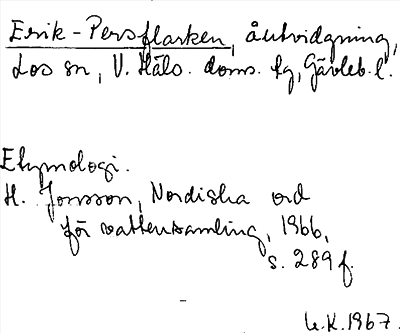 Erik-Persflarken, åutvidgning,
Los sn, V. Häls. doms. fg, Gävleb. l.
Etymologi.
H. Jonsson, Nordiska ord
för vattensamling, 1966,
s. 289 f.
U.K. 1967.